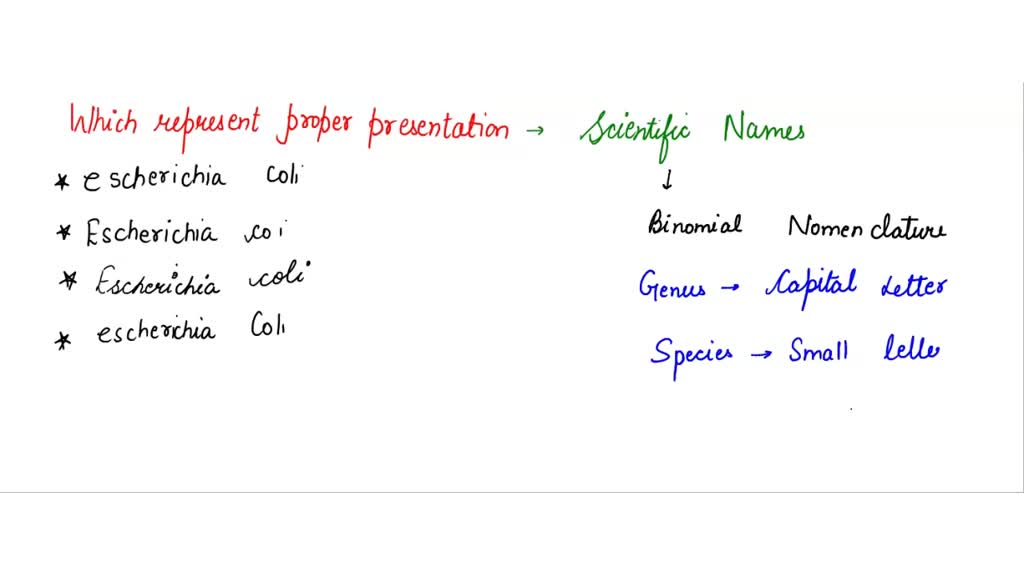 Which represent proper presentation → Scientific Names
↓
* escherichia coli
* Escherichia coi
* Escherichia coli
* escherichia Coli
Binomial Nomenclature
Genus → Capital Letter
Species → Small lelle